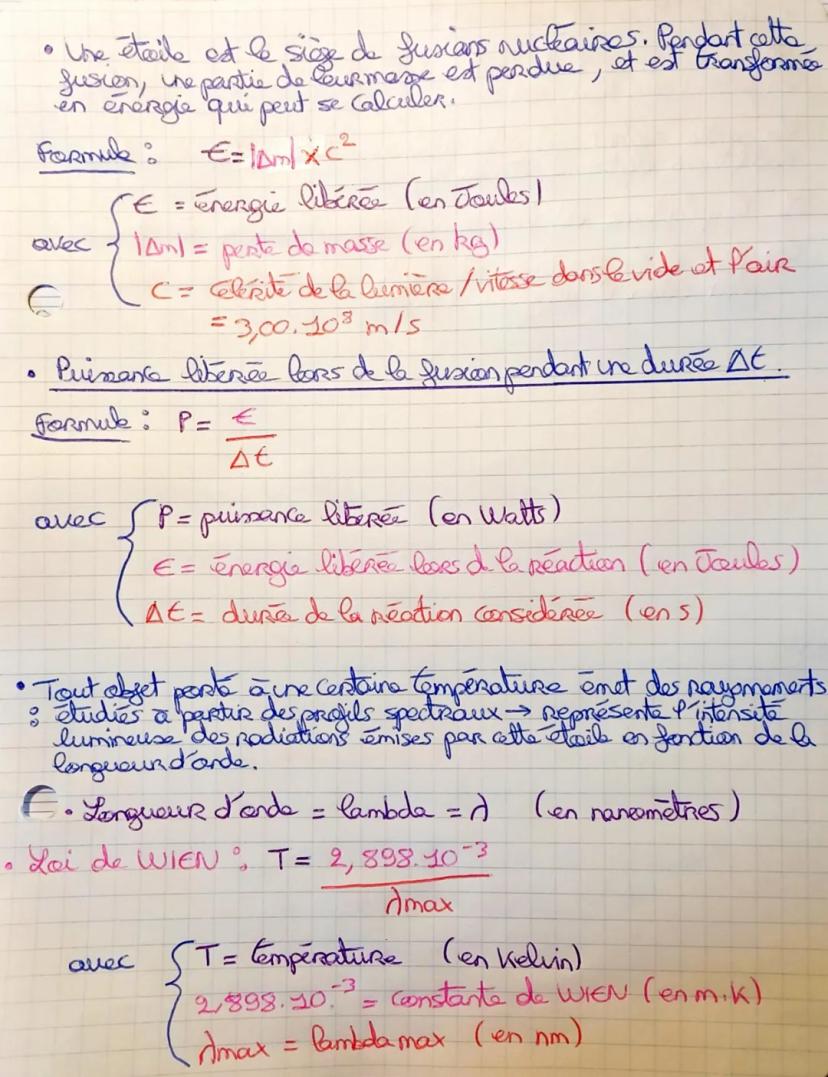 • Une étoile est le siège de fusions nucléaires. Pendant cette
fusion, une partie de leur masse est perdue, et est transformée
en énergie qui peut se calculer.
Formule : E = |Δm| × c²
avec { E = énergie libérée (en Joules)
|Δm| = perte de masse (en kg)
C = célérité de la lumière / vitesse dans le vide et l'air
= 3,00.10⁸ m/s
• Puissance libérée lors de la fusion pendant une durée Δt.
Formule : P = E
Δt
avec { P = puissance libérée (en Watts)
E = énergie libérée lors d la réaction (en Joules)
Δt = durée de la réaction considérée (en s)
• Tout objet porté à une certaine température émet des rayonnements
: étudiés à partir des profils spectraux → représente l'intensité
lumineuse des radiations émises par cette étoile en fonction de la
longueur d'onde.
• Longueur d'onde = lambda = λ (en nanomètres)
• Loi de WIEN : T = 2,898.10⁻³
λmax
avec { T = température (en Kelvin)
2,898.10⁻³ = constante de WIEN (en m.K)
λmax = lambda max (en nm)